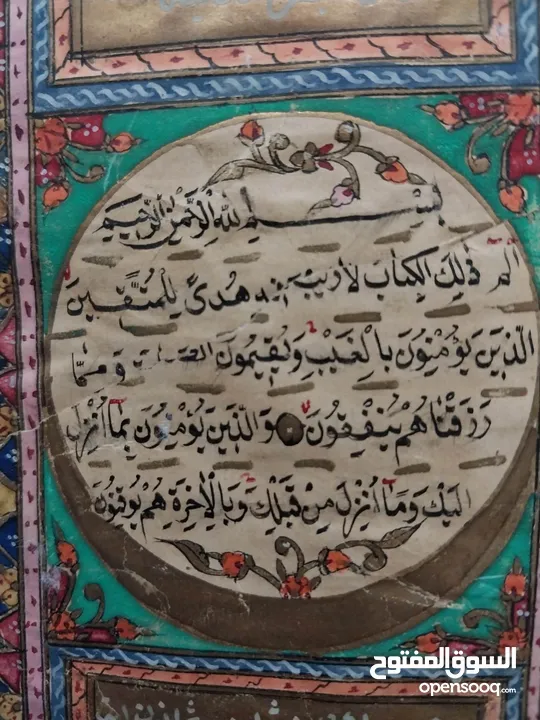 بسم الله الرحمن الرحيم
الم ذلك الكتاب لاريب فيه هدى للمتقين
الذين يؤمنون بالغيب ويقيمون الصلوة ومما
رزقناهم ينفقون والذين يؤمنون بما انزل
اليك وما انزل من قبلك وبالاخرة هم يوقنون
السوق المفتوح
opensooq.com